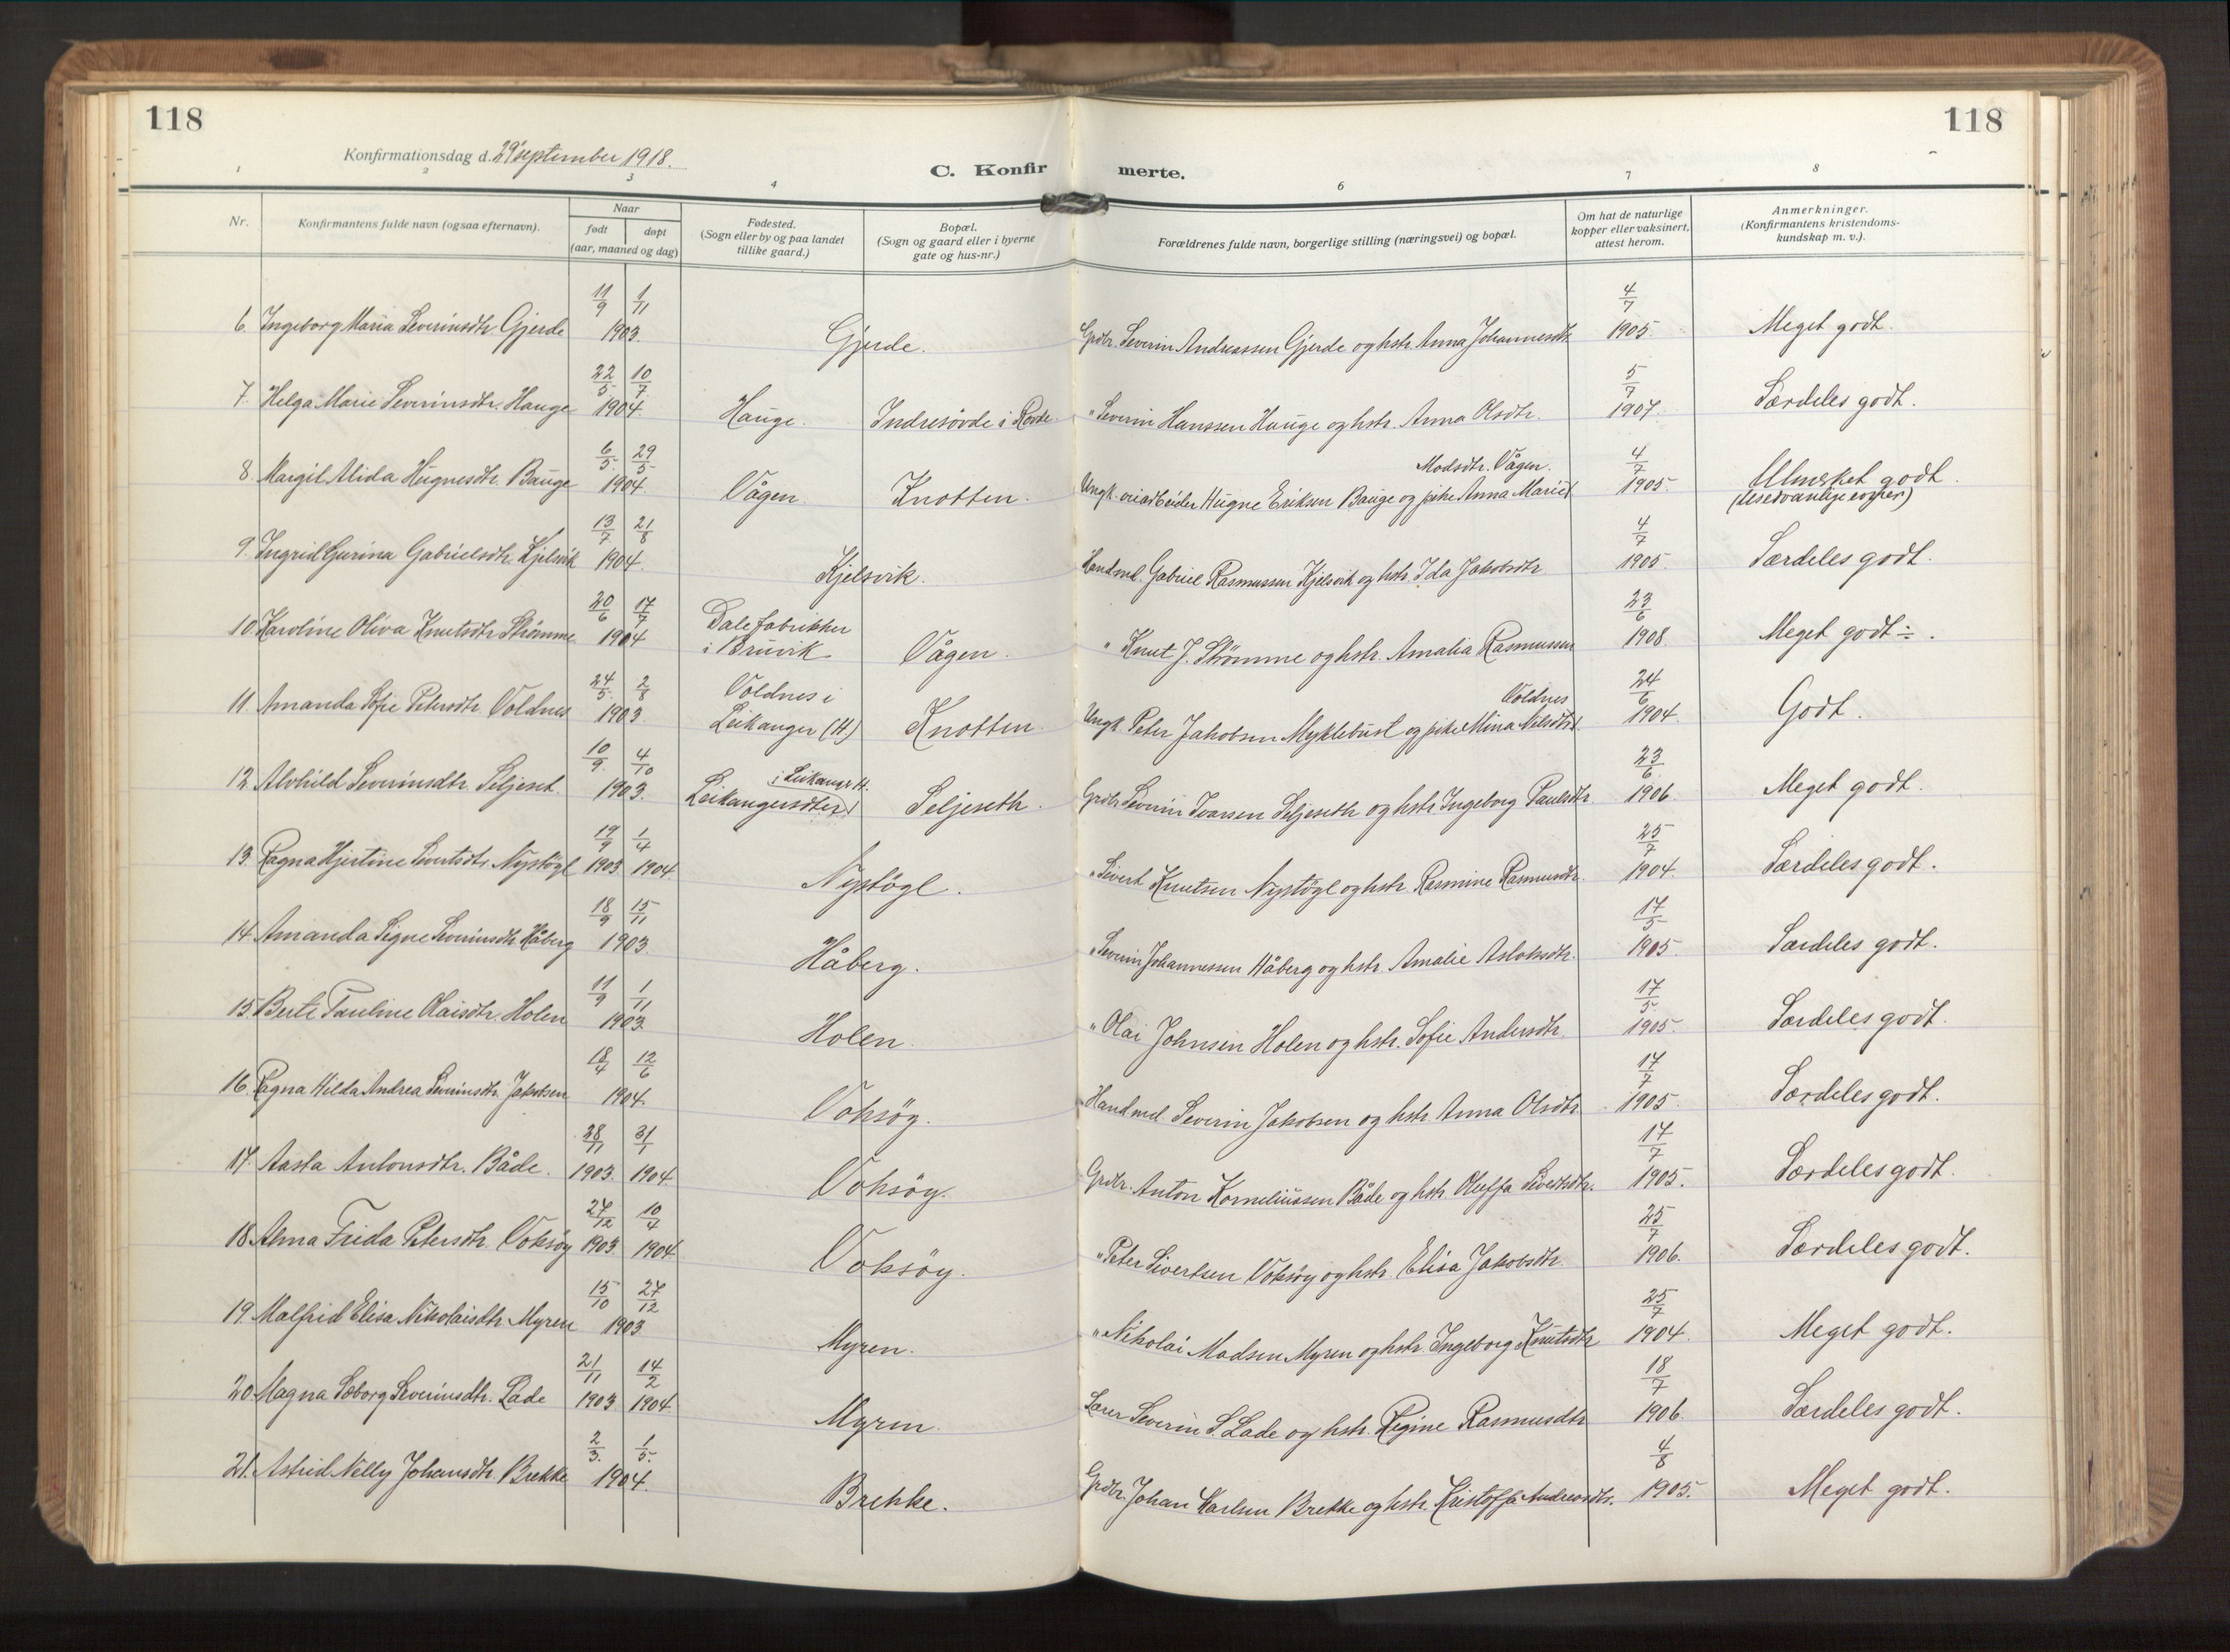 118
118
Konfirmationsdag d. 29' september 1918.
C. Konfirmerte.
1 2 3 4 6 7 8
Nr.
Konfirmantens fulde navn (ogsaa efternavn).
Naar
født
døpt
(aar, maaned og dag)
Fødested.
(Sogn eller by og paa landet
tillike gaard.)
Bopæl.
(Sogn og gaard eller i byerne
gate og hus-nr.)
Forældrenes fulde navn, borgerlige stilling (næringsvei) og bopæl.
Om hat de naturlige
kopper eller vaksinert,
attest herom.
Anmerkninger.
(Konfirmantens kristendoms-
kundskap m. v.).
11/9 1/11 4/7
6. Ingeborg Maria Severinsdtr. Gjerde 1903. Gjerde. Grdbr. Severin Andreassen Gjerde og hstr. Anna Johannesdtr. 1905. Meget godt.
22/5 10/7 5/7
7. Helga Marie Severinsdtr. Hauge 1904. Hauge. Indresövde i Rovde. " Severin Hanssen Hauge og hstr. Anna Olsdtr. 1907. Særdeles godt.
6/5 29/5 Madsdtr. Vågen. 4/7
8. Margit Alida Hugnesdtr. Bauge 1904. Vågen. Knotten. Ungk. Hugne Eriksen Bauge og pike Anna Marie 1905. Utmerket godt.
(Usedvanlige evner)
13/7 21/8 4/7
9. Ingrid Gurina Gabrielsdtr. Kjelsvik 1904. Kjelsvik. Handmd. Gabriel Rasmussen Kjelsvik og hstr. Ida Jakobsdtr. 1905. Særdeles godt.
20/6 17/7 Dale fabrikker 23/6
10. Karoline Oliva Knutsdtr. Strömme 1904 i Bruvik Vågen. " Knut J. Strömme og hstr. Amalia Rasmussen 1908. Meget godt ÷.
24/5 2/8 Voldnes i Voldnes 24/6
11. Amanda Sofie Petersdtr. Voldnes 1903. Leikanger (H.) Knotten. Ungk. Peter Jakobsen Myklebust og pike Mina Nilsdtr. 1904. Godt.
10/9 4/10 i Leikanger H. 23/6
12. Alvhild Severinsdtr. Seljeset. 1903. Seljeseth. Grdbr. Severin Ivarsen Seljeseth og hstr. Ingeborg Paulsdtr 1906. Meget godt.
19/9 1/4 25/7
13. Ragna Hjertine Sivertsdtr. Nystögl 1903 1904. Nystögl. " Sivert Knutsen Nystögl og hstr. Rasmine Rasmusdtr. 1904. Særdeles godt.
18/9 15/11 17/5
14. Amanda Signe Severinsdtr. Håberg 1903. Håberg. " Severin Johannessen Håberg og hstr. Amalie Aslaksdtr. 1905. Særdeles godt.
11/9 1/11 17/5
15. Berte Pauline Olaisdtr. Holen 1903. Holen. " Olai Johnsen Holen og hstr. Sofie Andersdtr. 1905. Særdeles godt.
18/4 12/6 17/7
16. Ragna Hilda Andrea Severinsdtr. Jakobsen 1904. Voksöy. Handmd Severin Jakobsen og hstr. Anna Olsdtr. 1905. Særdeles godt.
28/11 31/1 17/7
17. Aasta Antonsdtr. Både. 1903. 1904. Voksöy. Grdbr. Anton Korneliussen Både og hstr. Oluffa Sivertsdtr. 1905. Særdeles godt.
27/12 10/4 25/7
18. Alma Frida Petersdtr. Voksöy 1903. 1904. Voksöy. " Peter Sivertsen Voksöy og hstr. Elisa Jakobsdtr. 1906. Særdeles godt.
15/10 27/12 25/7
19. Malfrid Elisa Nikolaisdtr. Myren 1903 Myren. " Nikolai Madsen Myren og hstr. Ingeborg Knutsdtr 1904. Meget godt.
21/11 14/2 18/7
20. Magna Soborg Severinsdtr. Lade 1903 1904. Myren. Lærer Severin S. Lade og hstr. Regine Rasmusdtr 1906. Særdeles godt.
2/3. 1/5. 4/8
21. Astrid Nelly Johansdtr. Brekke 1904. Brekke. Grdbr. Johan Karlsen Brekke og hstr. Kristoffa Andreasdtr. 1905. Meget godt.